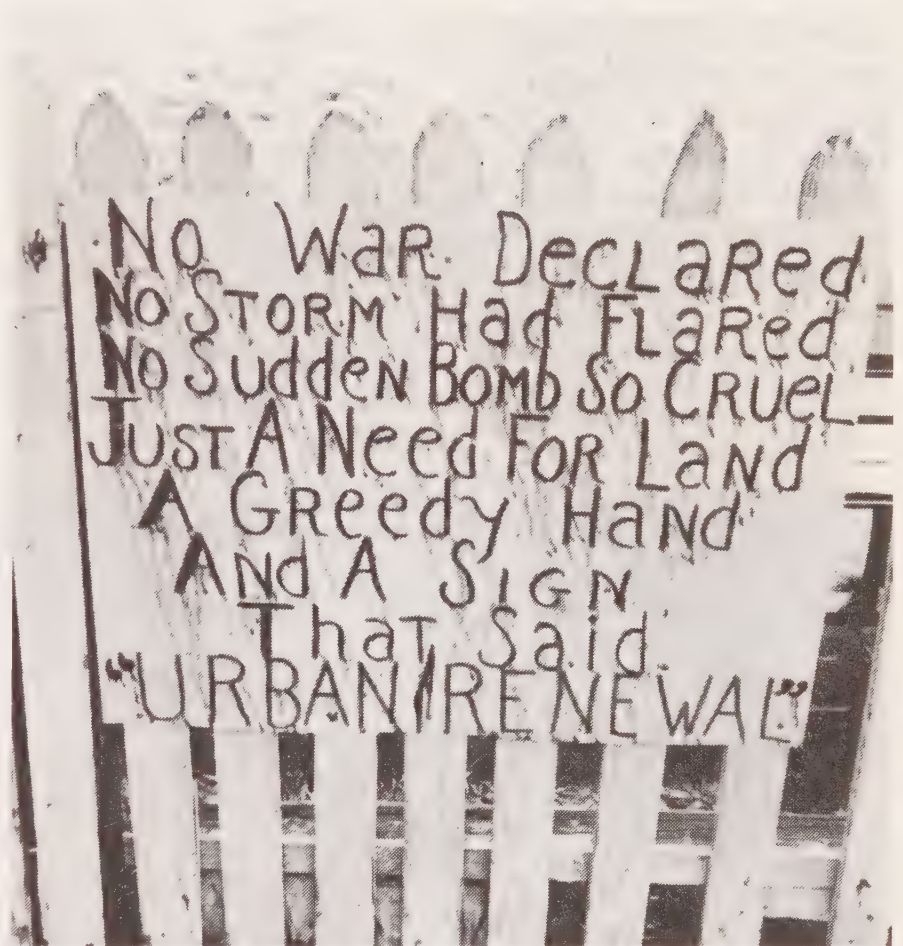 No WaR DecLaRed
No STORM Had FLaRed
No SuddeN BoMb So CRUeL
JUST A Need FOR LaNd
A GReedy HaNd
ANd A SIGN
That Said
"URBAN RENEWAL"